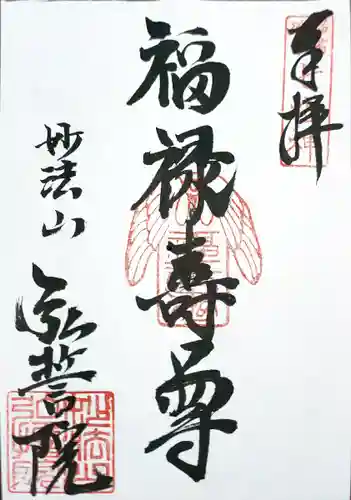 奉拝
福禄寿尊
妙法山
弘誓院